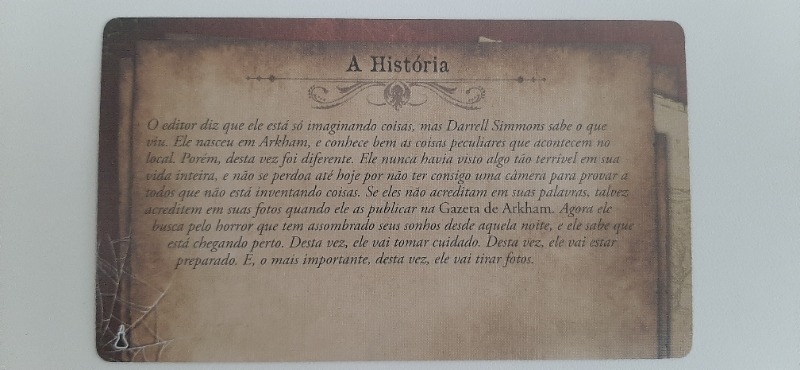 A História
O editor diz que ele está só imaginando coisas, mas Darrell Simmons sabe o que
viu. Ele nasceu em Arkham, e conhece bem as coisas peculiares que acontecem no
local. Porém, desta vez foi diferente. Ele nunca havia visto algo tão terrível em sua
vida inteira, e não se perdoa até hoje por não ter consigo uma câmera para provar a
todos que não está inventando coisas. Se eles não acreditam em suas palavras, talvez
acreditem em suas fotos quando ele as publicar na Gazeta de Arkham. Agora ele
busca pelo horror que tem assombrado seus sonhos desde aquela noite, e ele sabe que
está chegando perto. Desta vez, ele vai tomar cuidado. Desta vez, ele vai estar
preparado. E, o mais importante, desta vez, ele vai tirar fotos.